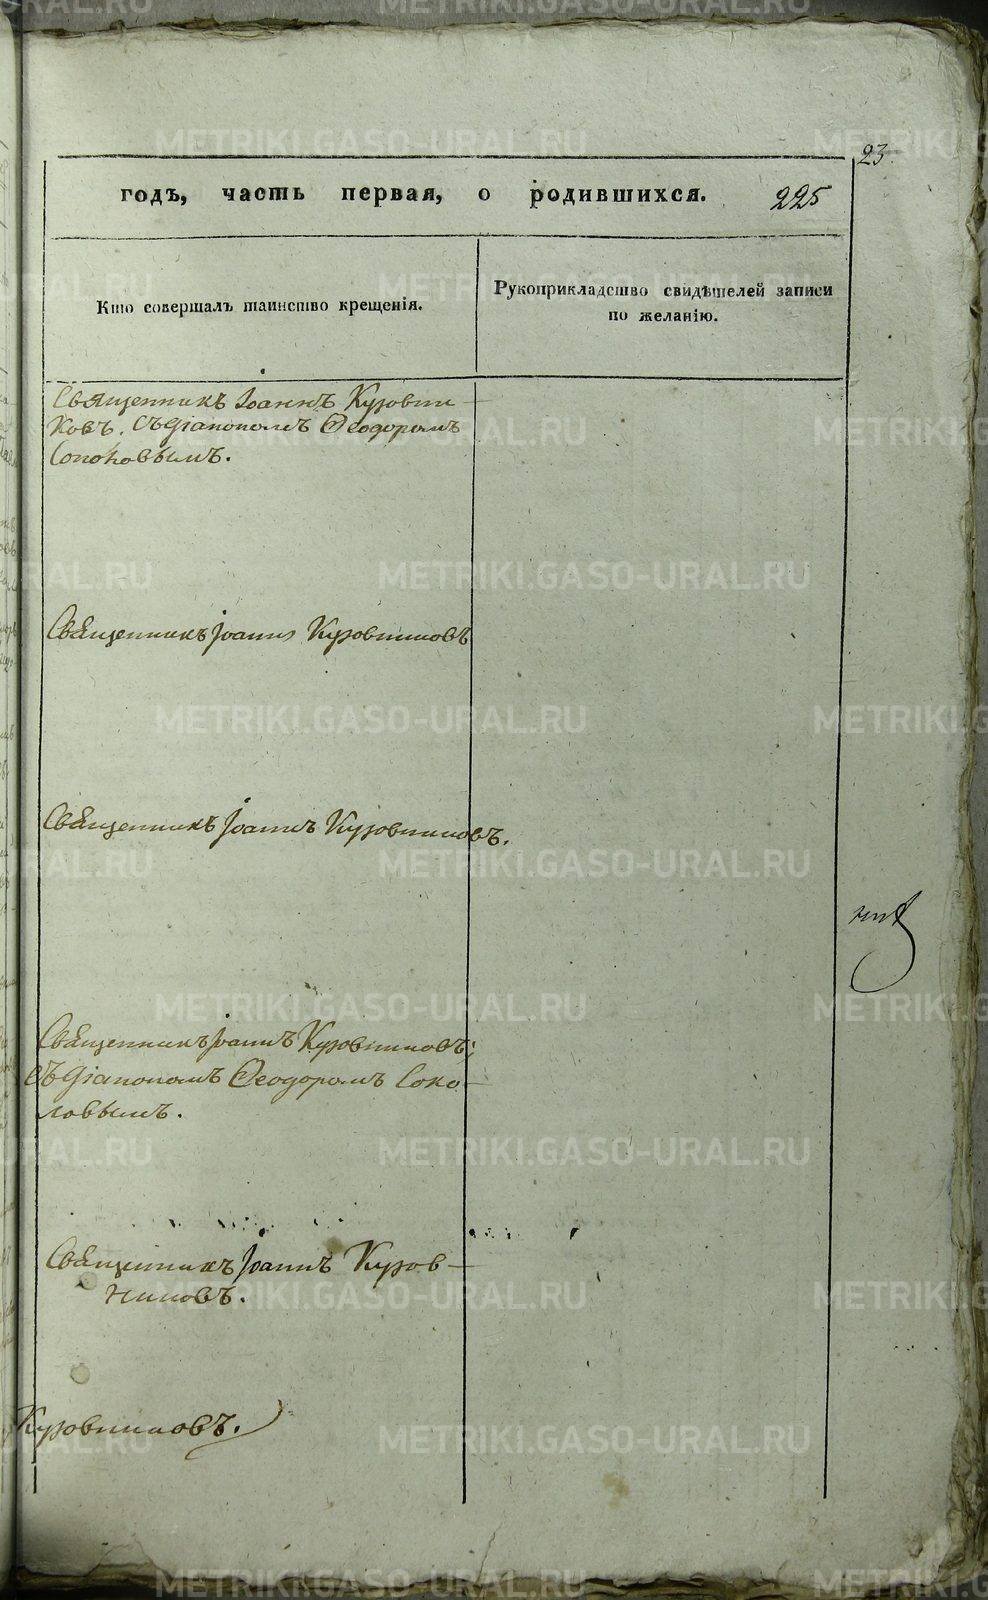 23.
годъ, часть первая, о родившихся. 225
Кто совершалъ таинство крещенія.
Рукоприкладство свидѣтелей записи
по желанію.
Священникъ Іоаннъ Кузовни-
ковъ. съ діакономъ Ѳеодоромъ
Соколовымъ.
Священникъ Іоаннъ Кузовниковъ
Священникъ Іоаннъ Кузовниковъ.
Священникъ Іоаннъ Кузовниковъ;
съ діакономъ Ѳеодоромъ Соко-
ловымъ.
Священникъ Іоаннъ Кузов-
никовъ.
Кузовниковъ.
METRIKI.GASO-URAL.RU